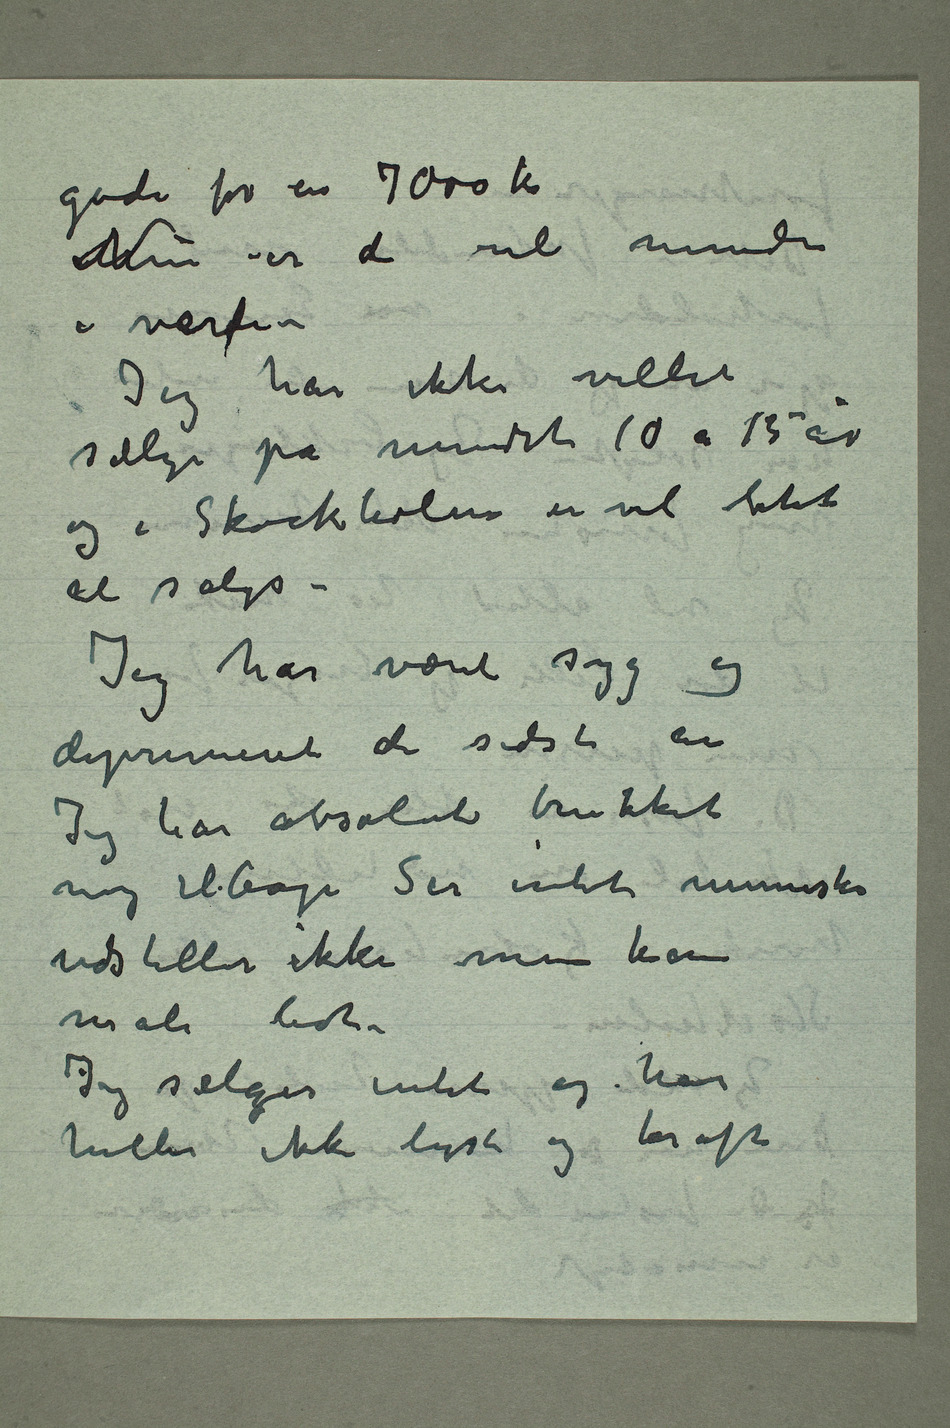 gode for en 7000 k
Nu er de vel mindre
i værdi –
Jeg har ikke villet
sælge på mindst 10 a 15 år
og i Skockholm er vel lidet
at sælge –
Jeg har været syg og
deprimeret de sidste år
Jeg har absolut trukket
mig tilbage Ser intet menneske
udstiller ikke men kan
male lidt –
Jeg sælger intet og har
heller ikke lyst og kraft